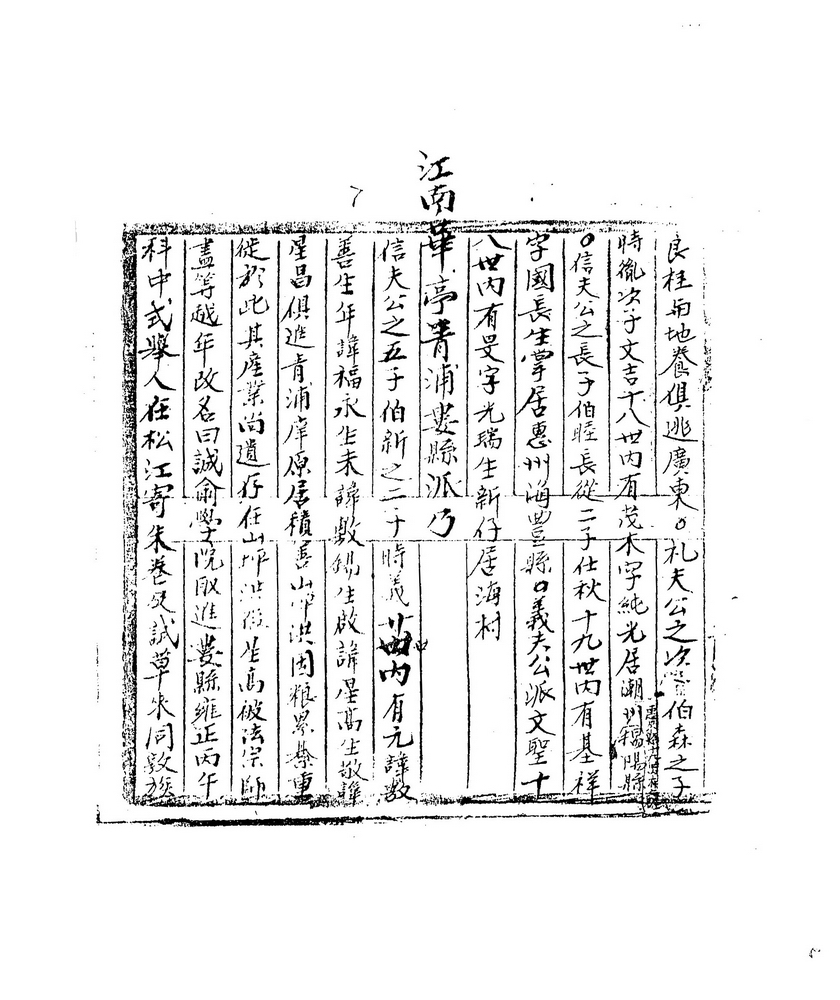 良柱与地養俱逃廣東。礼夫公之次子伯森之子
時胤次子文吉十八世内有茂木字純光居潮州揭陽縣
。信夫公之長子伯睦長從二子仕秋十九世内有基祥
字國長生掌居惠州海豊縣。義夫公派文聖十
八世内有旻字光瑞生新仔居海村
江南華亭青浦婁縣派乃
信夫公之五子伯新之二子時義廿四内有元諱数
善生年諱福永生未諱敷錫生啟諱星高生敬諱
星昌俱進青浦庠原居積善山坪洪因粮累業重
徙於此其産業尚遺存任山坪洪後生高被法宗師
盡等越年改名曰誠俞學院取進婁縣雍正丙午
科中式舉人在松江寄朱卷及試草來同敦族